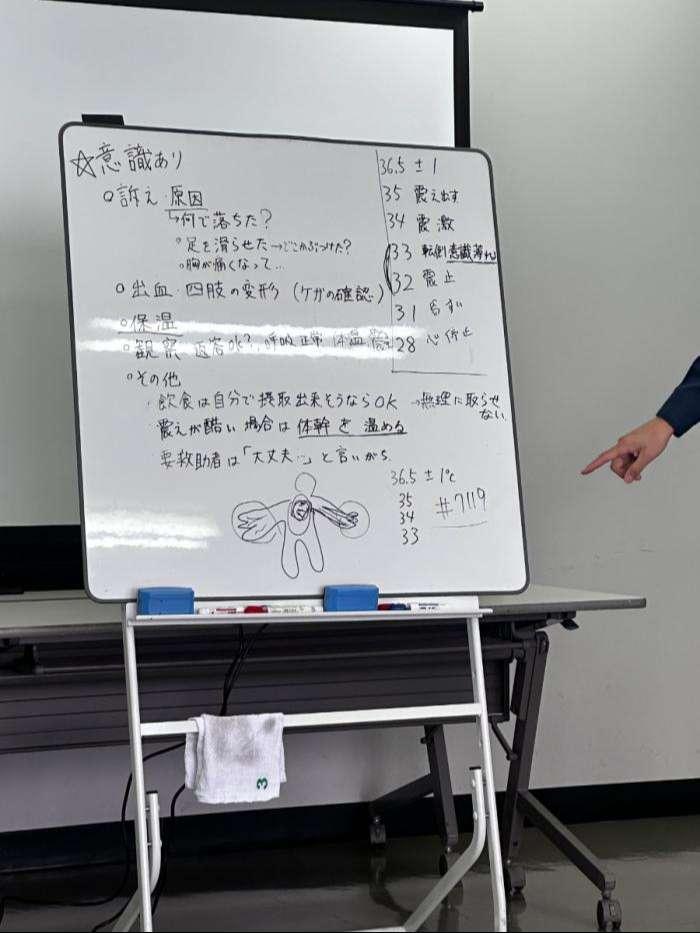 ☆意識あり
○訴え・原因
↳何で落ちた?
○足を滑らせた→どこかぶつけた?
○胸が痛くなって…
○出血・四肢の変形 (ケガの確認)
○保温
○観察 返答OK?, 呼吸正常 体温
○その他
・飲食は自分で摂取出来そうならOK →無理に取らせない
・震えが酷い場合は体幹を温める
・要救助者は「大丈夫…」と言いがち
36.5 ± 1
35 震え出す
34 震 激
33 転倒 意識薄れ
32 震 止
31
28 心停止
36.5 ± 1℃
35
34
33
#7119
3